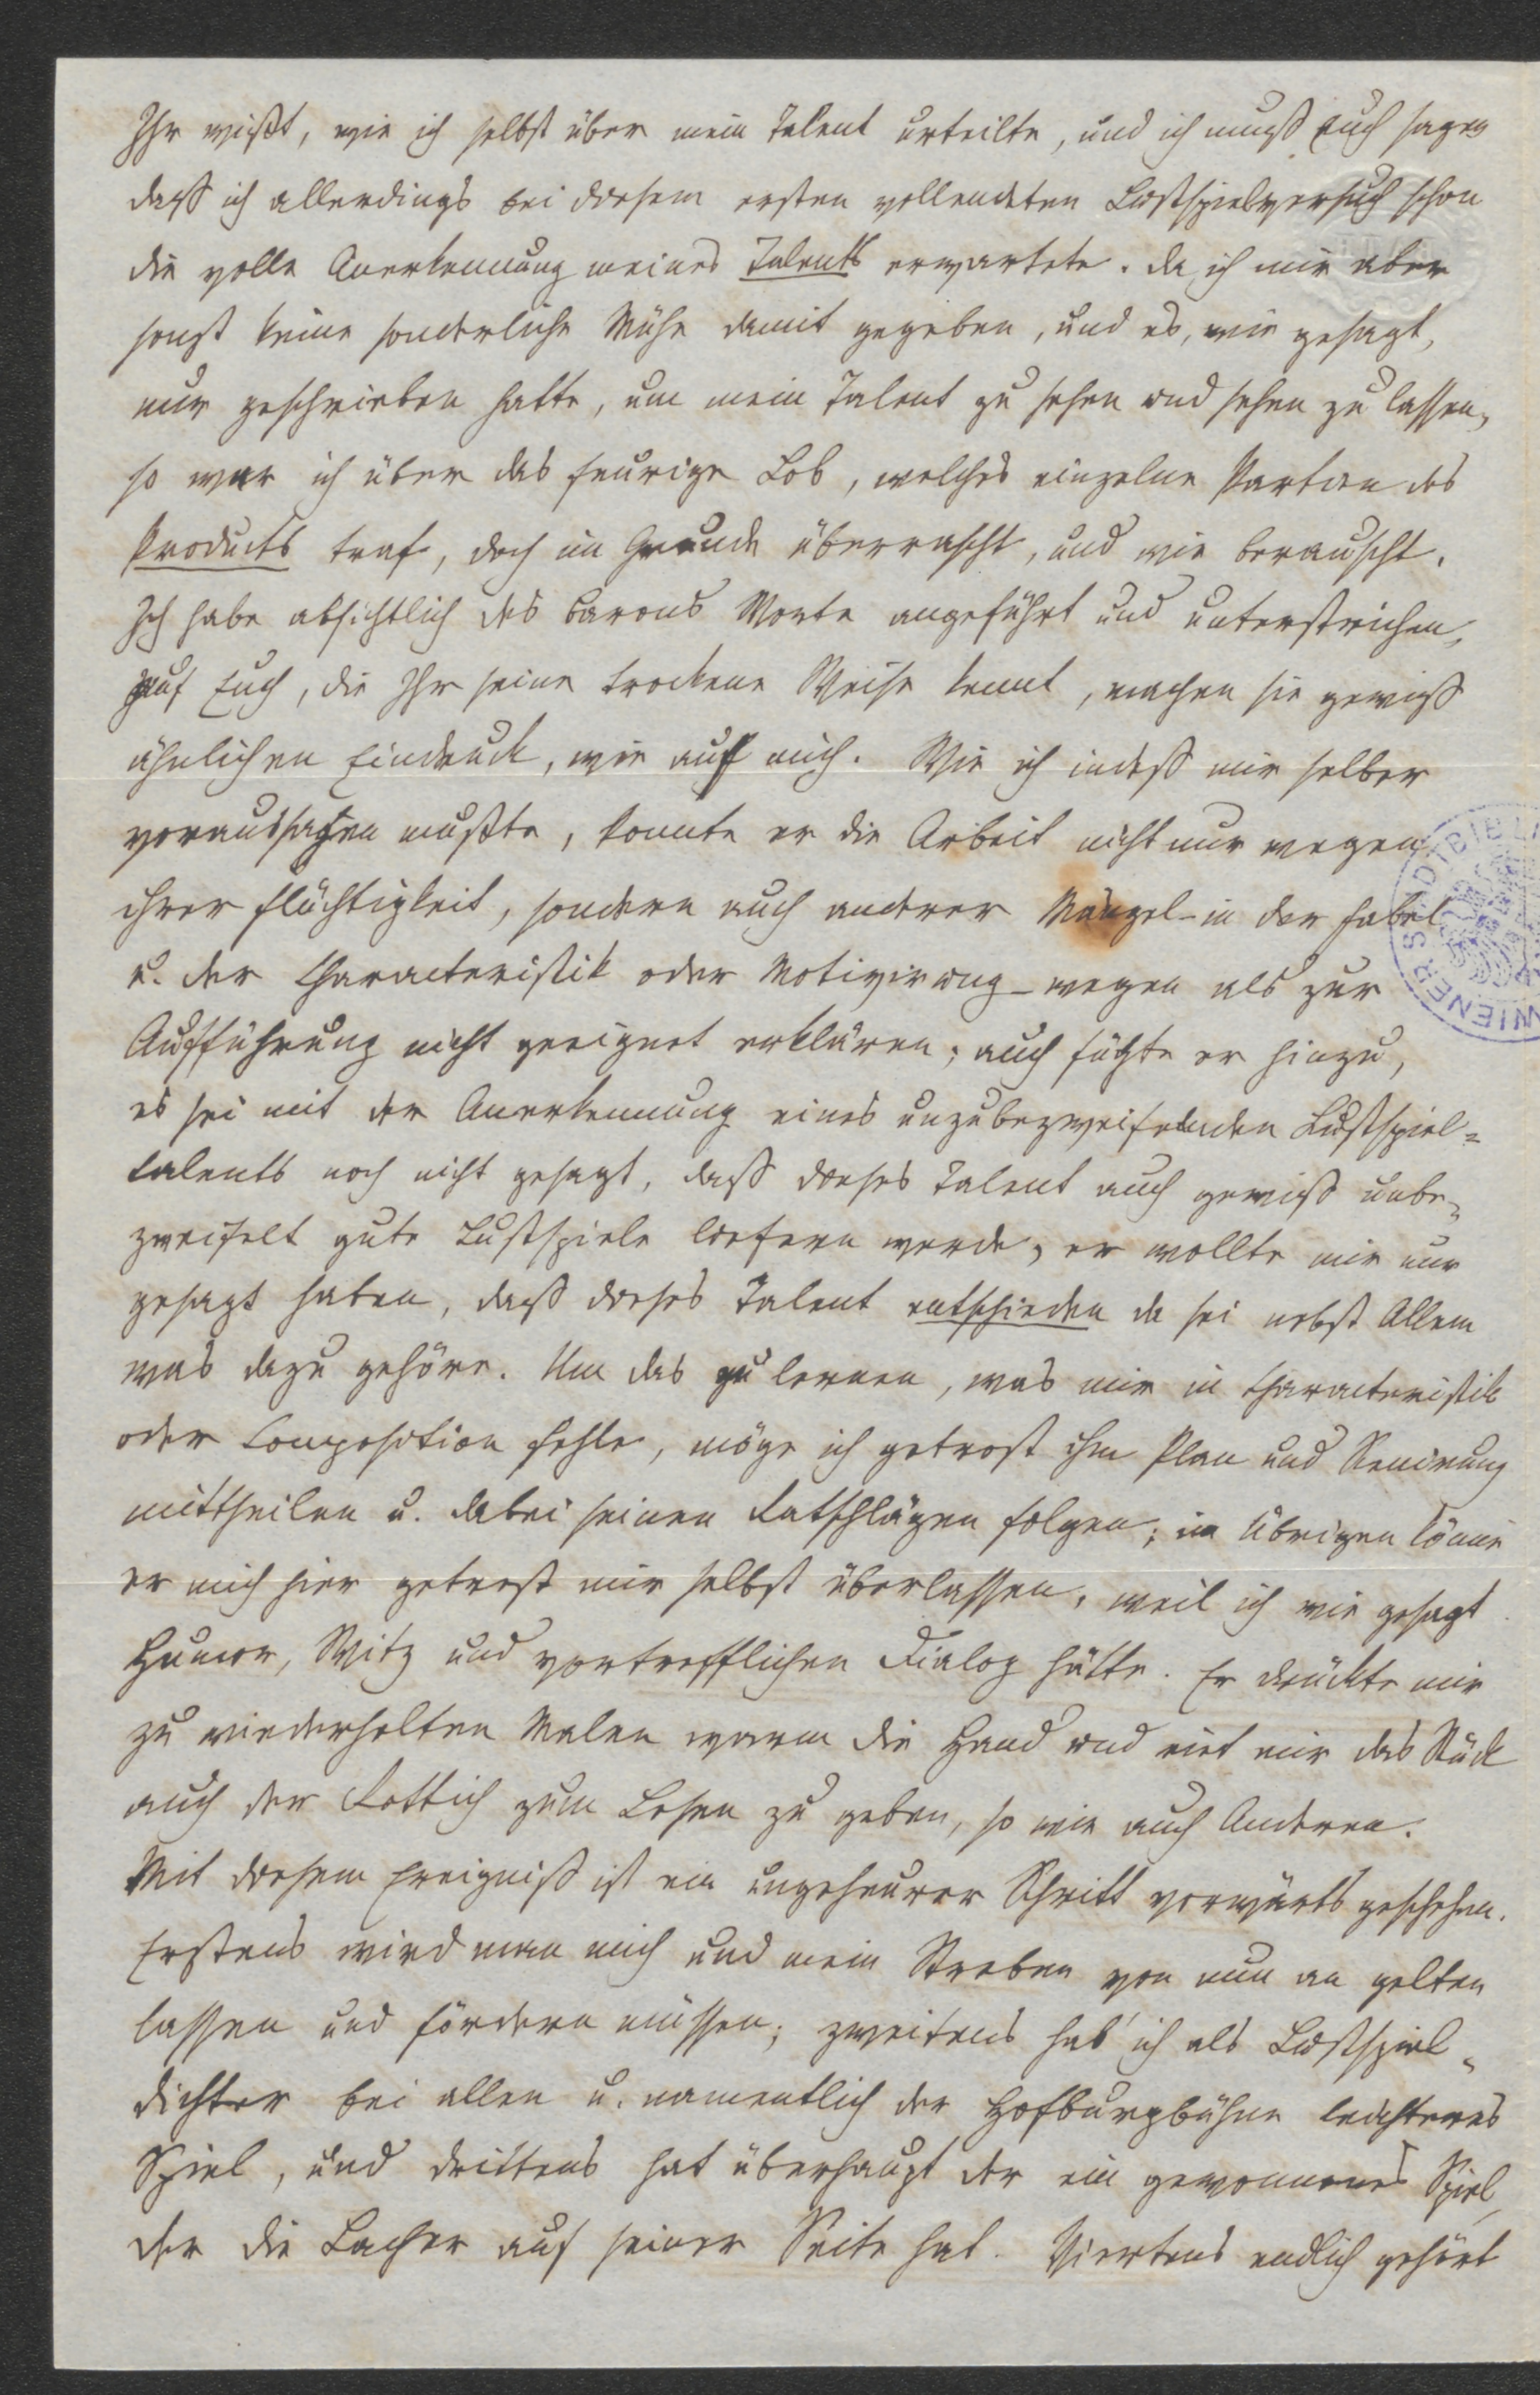 Ihr wißt, wie ich selbst über mein Talent urteilte, und ich muß Euch sagen
daß ich allerdings bei diesem ersten vollendeten Lustspielversuch schon
die volle Anerkennung meines Talents erwartete. Da ich mir aber
sonst keine sonderliche Mühe damit gegeben, und es, wie gesagt,
nur geschrieben hatte, um mein Talent zu sehen und sehen zu lassen,
so war ich über das feurige Lob, welches einzelne Partien des
Products traf, doch im Grunde überrascht, und wie berauscht.
Ich habe absichtlich des Barons Worte angeführt und unterstrichen,
auf Euch, die Ihr seine trockene Weise kennt, machen sie gewiß
ähnlichen Eindruck, wie auf mich. Wie ich indeß mir selber
voraussagen mußte, konnte er die Arbeit nicht nur wegen
ihrer Flüchtigkeit, sondern auch anderer Mängel – in der Fabel
u. der Characteristik oder Motivirung – wegen als zur
Aufführung nicht geeignet erklären; auch fügte er hinzu,
es sei mit der Anerkennung eines unzubezweifelnden Lustspiel=
talents noch nicht gesagt, daß dieses Talent auch gewiß unbe=
zweifelt gute Lustspiele liefern werde, er wollte mir nur
gesagt haben, daß dieses Talent entschieden da sei nebst Allem
was dazu gehöre. Um das zu lernen, was mir in Characteristik
oder Composition fehle, möge ich getrost ihm Plan und Scenirung
mittheilen u. dabei seinen Ratschlägen folgen; im Übrigen könne
er mich hier getrost mir selbst überlassen, weil ich wie gesagt
Humor, Witz und vortrefflichen Dialog hätte. Er drückte mir
zu wiederholten Malen warm die Hand und riet mir das Stück
auch der Rettich zum Lesen zu geben, so wie auch Anderen.
Mit diesem Ereigniß ist ein ungeheurer Schritt vorwärts geschehen.
Erstens wird man mich und mein Streben von nun an gelten
lassen und fördern müssen; zweitens hab' ich als Lustspiel=
dichter bei allen u. namentlich der Hofburgbühne leichteres
Spiel, und drittens hat überhaupt der ein gewonnenes Spiel,
der die Lacher auf seiner Seite hat. Viertens endlich gehört
WIENER STADTBIBLI